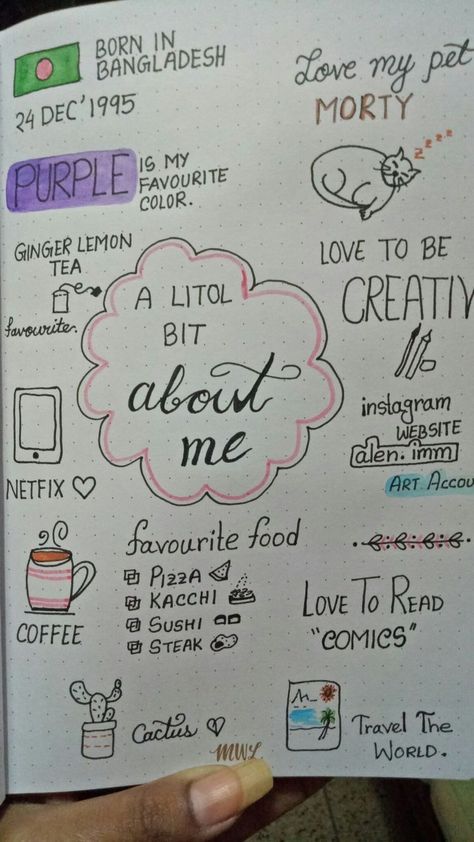 BORN IN
BANGLADESH
24 DEC'1995
PURPLE
IS MY
FAVOURITE
COLOR.
GINGER LEMON
TEA
favourite.
NETFIX
COFFEE
A LITOL
BIT
about
me
favourite food
PIZZA
KACCHI
SUSHI
STEAK
Cactus
MWL
Love my pet
MORTY
zzzz
LOVE TO BE
CREATIV
instagram
WEBSITE
alen.imm
ART ACCOU
LOVE TO READ
"COMICS"
Travel THE
WORLD.